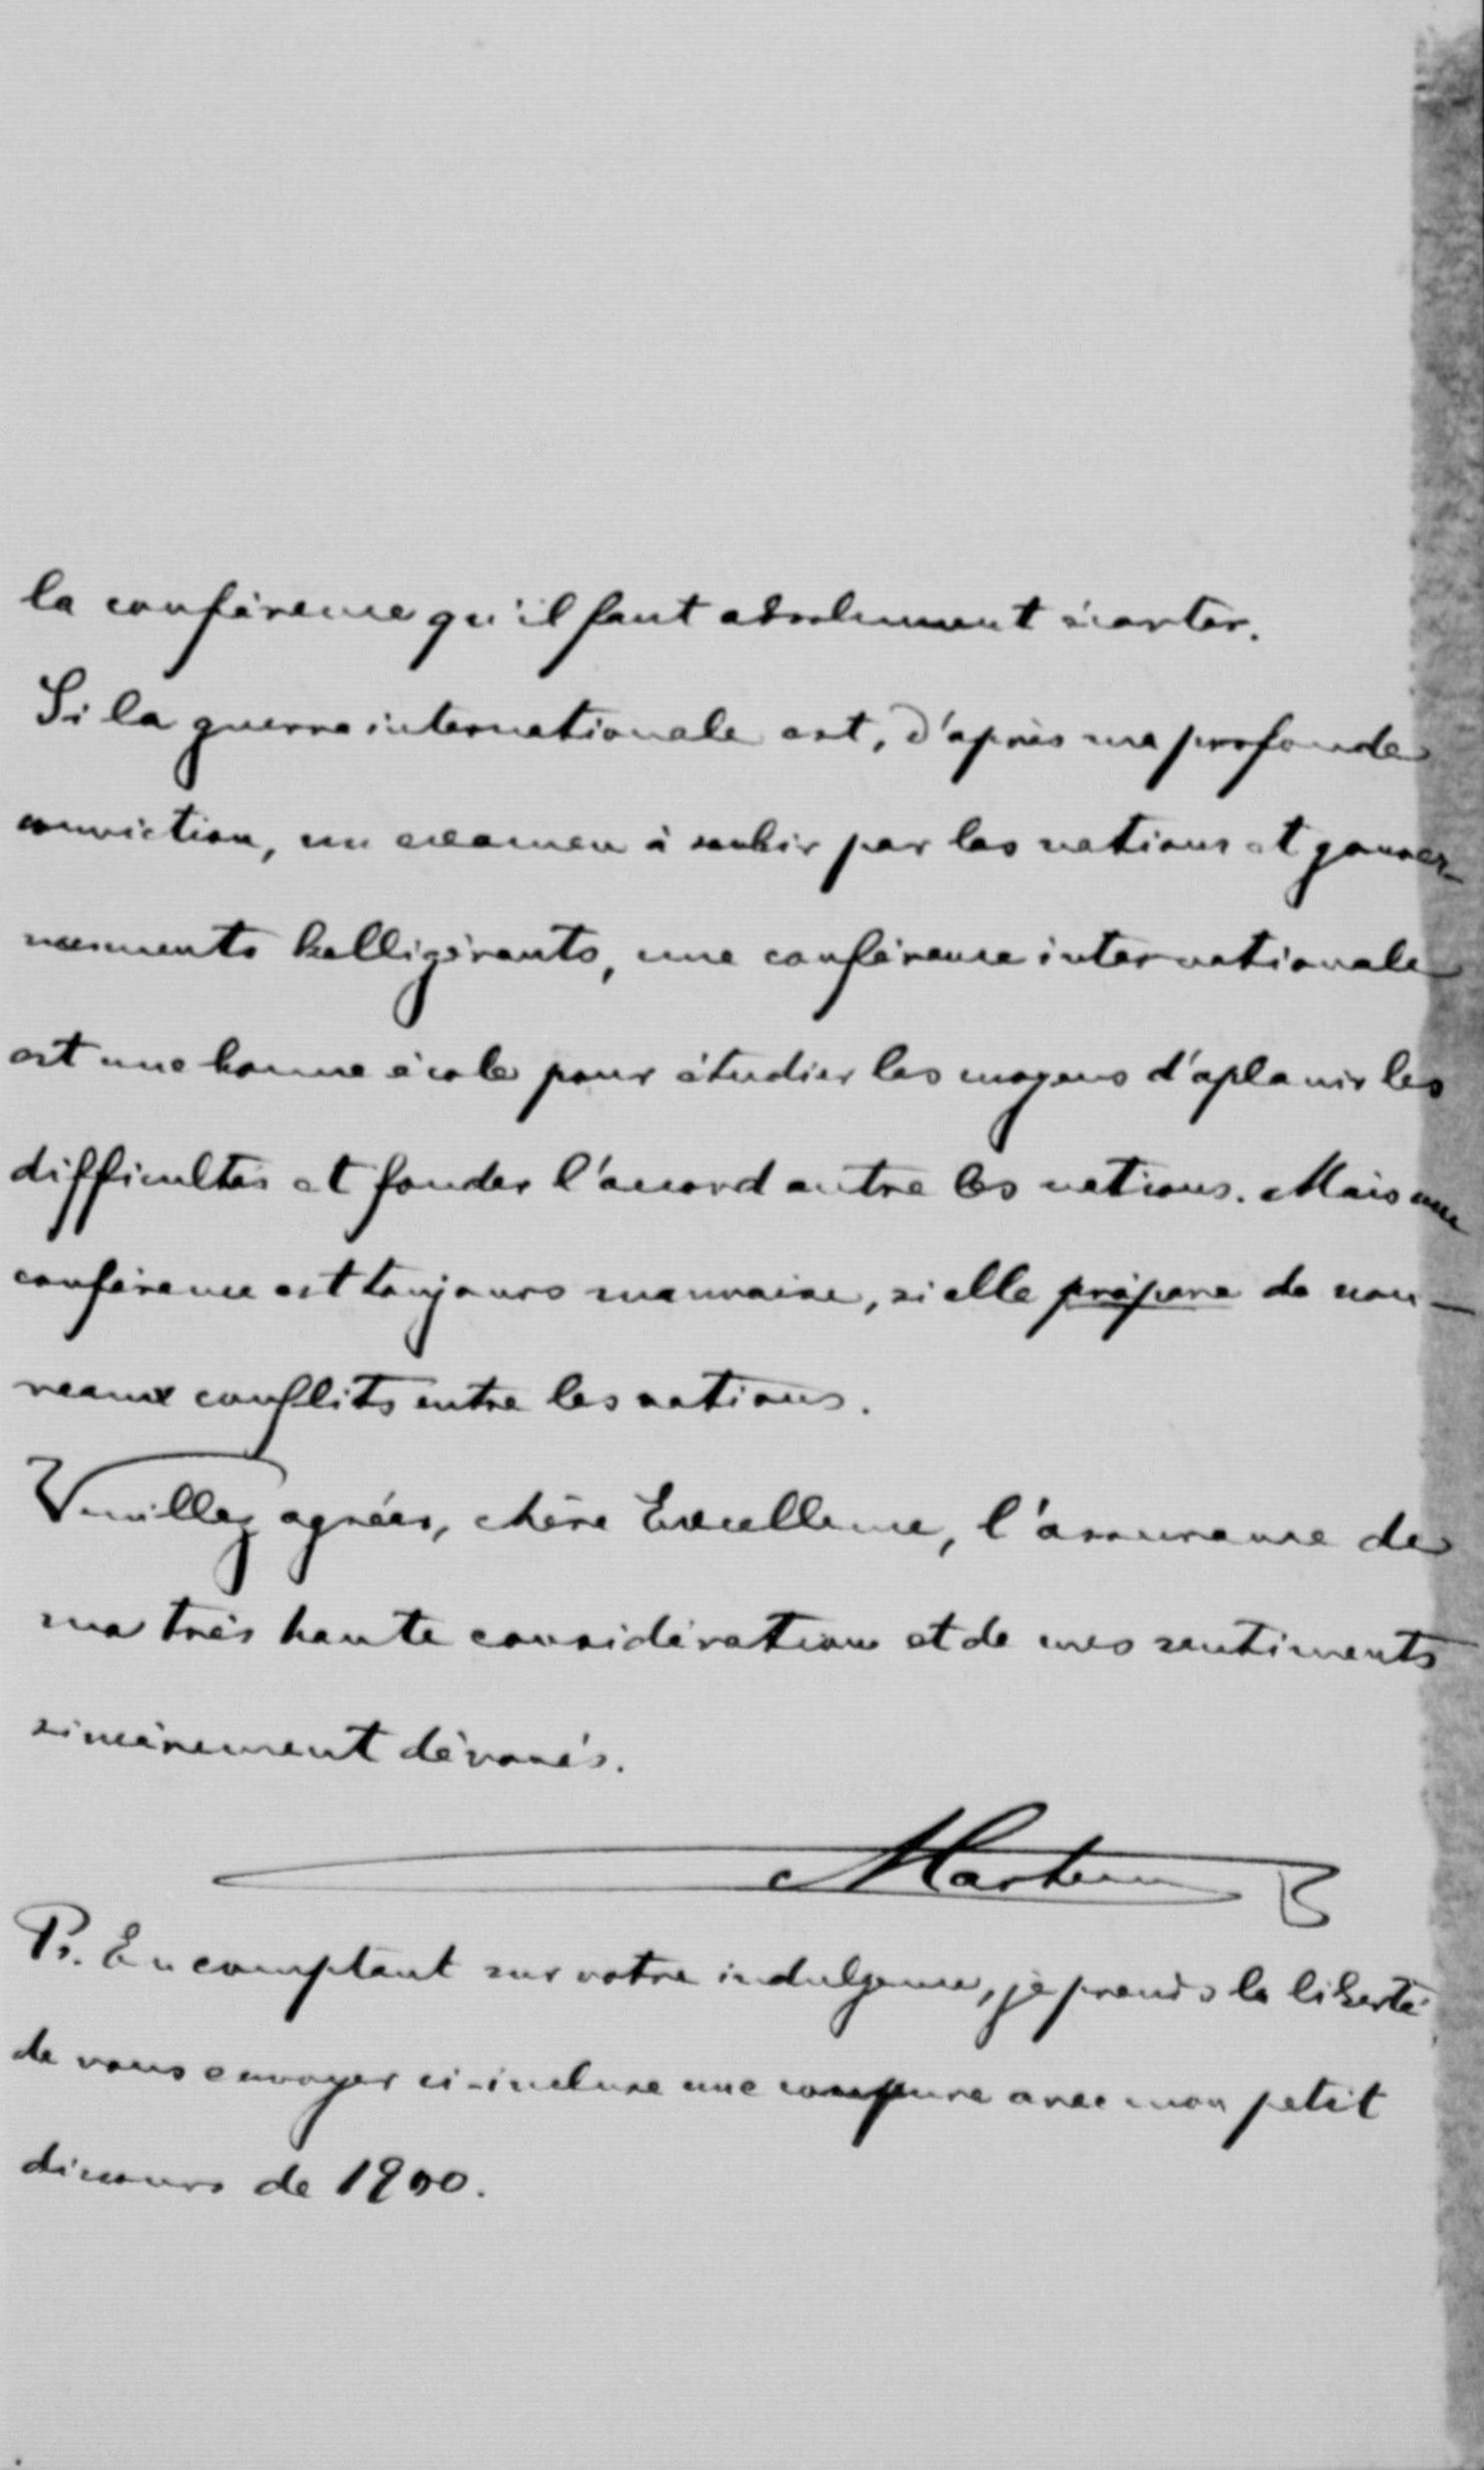 la conférence qu'il faut absolument écarter.
Si la guerre internationale est, d'après ma profonde
conviction, un examen à subir par les nations et gouver-
nements belligérants, une conférence internationale
est une bonne école pour étudier les moyens d'aplanir les
difficultés et fonder l'accord entre les nations. Mais une
conférence est toujours mauvaise, si elle prépare de nou-
veaux conflits entre les nations.
Veuillez agréer, chère Excellence, l'assurance de
ma très haute considération et de mes sentiments
sincèrement dévoués.
Martens
Ps. En comptant sur votre indulgence, je prends la liberté
de vous envoyer ci-incluse une coupure avec mon petit
discours de 1900.